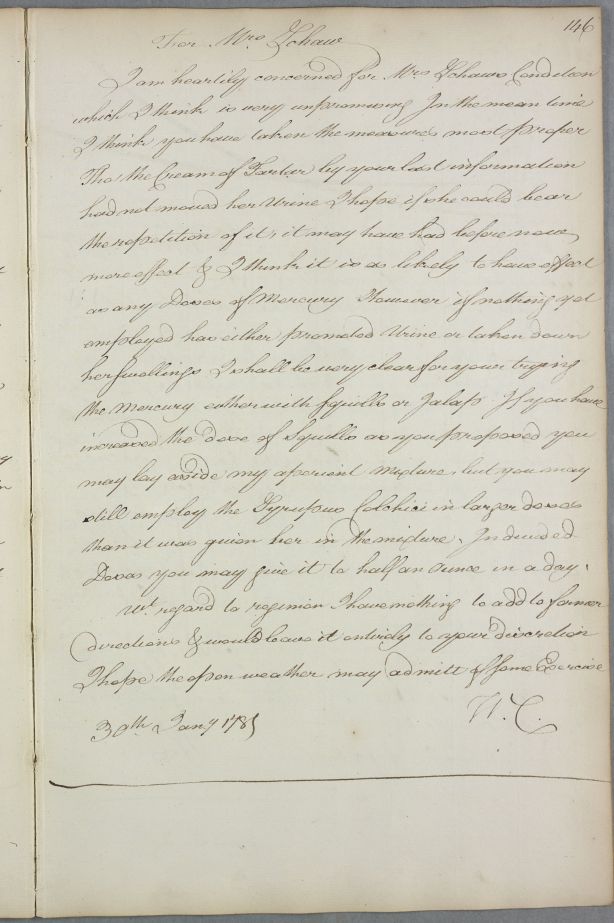 146
For Mrs Schaw
I am heartily concerned for Mrs Schaws Condition
which I think is very unpromising In the mean time
I think you have taken the measures most proper
Tho the Cream of Tartar by your last information
had not moved her Urine I hope if she could bear
the repetition of it, it may have had before now
more effect & I think it is as likely to have effect
as any Doses of Mercury However if nothing yet
employed has either promoted Urine or taken down
her swellings I shall be very clear for your trying
the Mercury either with Squills or Jalap. If you have
increased the dose of Squills as you proposed you
may lay aside my aperient mixture, but you may
still employ the Syrupus Colchici in larger doses
than it was given her in the mixture. In divided
Doses you may give it to half an ounce in a day.
Wt. regard to regimen I have nothing to add to former
directions & would leave it entirely to your discretion
I hope the open weather may admitt of some Exercise
W. C.
30th Jany 1785